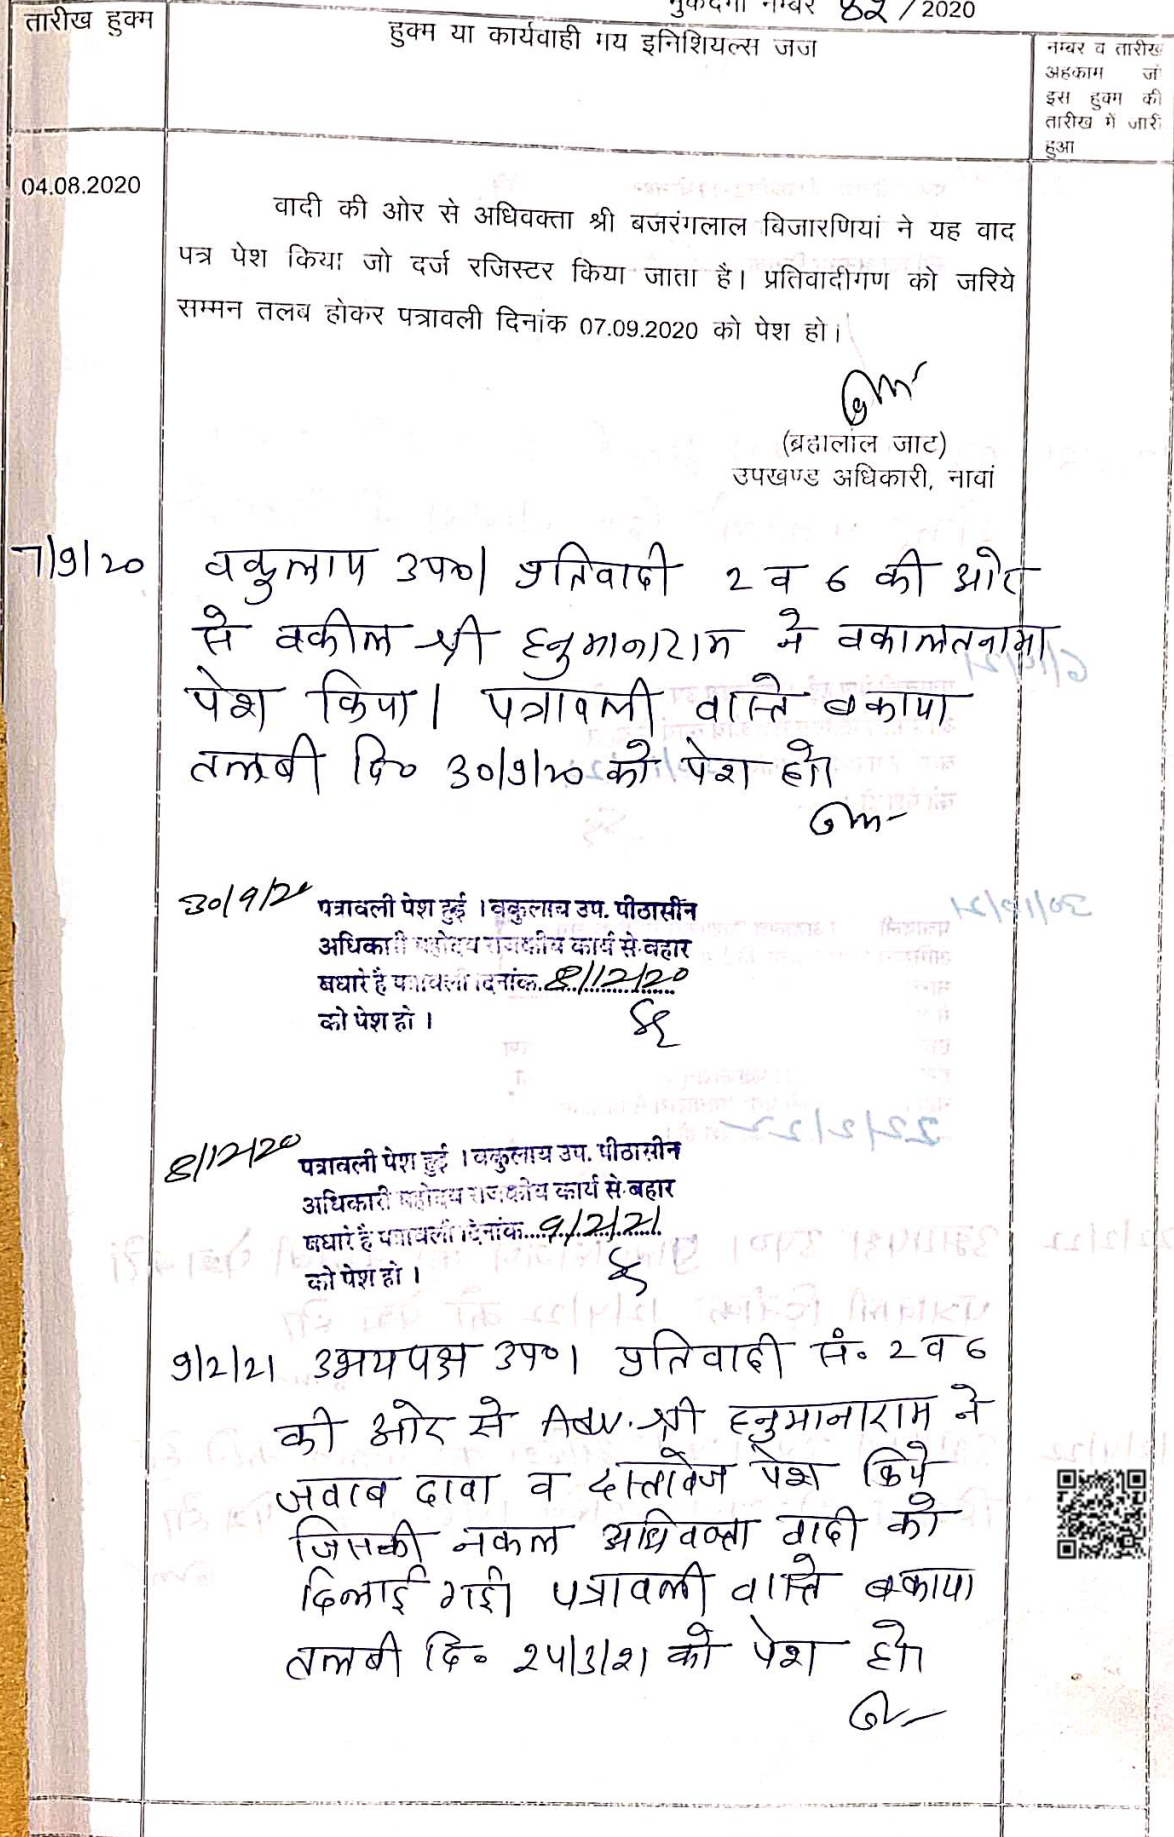 मुकदमा नम्बर 82/2020
तारीख हुक्म
हुक्म या कार्यवाही मय इनिशियल्स जज
नम्बर व तारीख
अहकाम जो
इस हुक्म की
तारीख में जारी
हुआ
04.08.2020
वादी की ओर से अधिवक्ता श्री बजरंगलाल बिजारणियां ने यह वाद
पत्र पेश किया जो दर्ज रजिस्टर किया जाता है। प्रतिवादीगण को जरिये
सम्मन तलब होकर पत्रावली दिनांक 07.09.2020 को पेश हो।
(ब्रहालाल जाट)
उपखण्ड अधिकारी, नावां
7/9/20 वकुलाय उप०। प्रतिवादी 2 व 6 की ओर
से वकील श्री हनुमानाराम ने वकालतनामा
पेश किया। पत्रावली वास्ते बकाया
तलबी दि० 30/9/20 को पेश हो।
30/9/20 पत्रावली पेश हुई । वकुलाय उप. पीठासीन
अधिकारी महोदय राजकीय कार्य से बहार
पधारे है पत्रावली दिनांक 8/12/20
को पेश हो ।
8/12/20 पत्रावली पेश हुई । वकुलाय उप. पीठासीन
अधिकारी महोदय राजकीय कार्य से बहार
पधारे है पत्रावली दिनांक....9/2/21
को पेश हो ।
9/2/21 उभयपक्ष उप०। प्रतिवादी सं० 2 व 6
की ओर से Adv. श्री हनुमानाराम ने
जवाब दावा व दस्तावेज पेश किये
जिसकी नकल अधिवक्ता वादी को
दिलाई गई। पत्रावली वास्ते बकाया
तलबी दि० 24/3/21 को पेश हो।